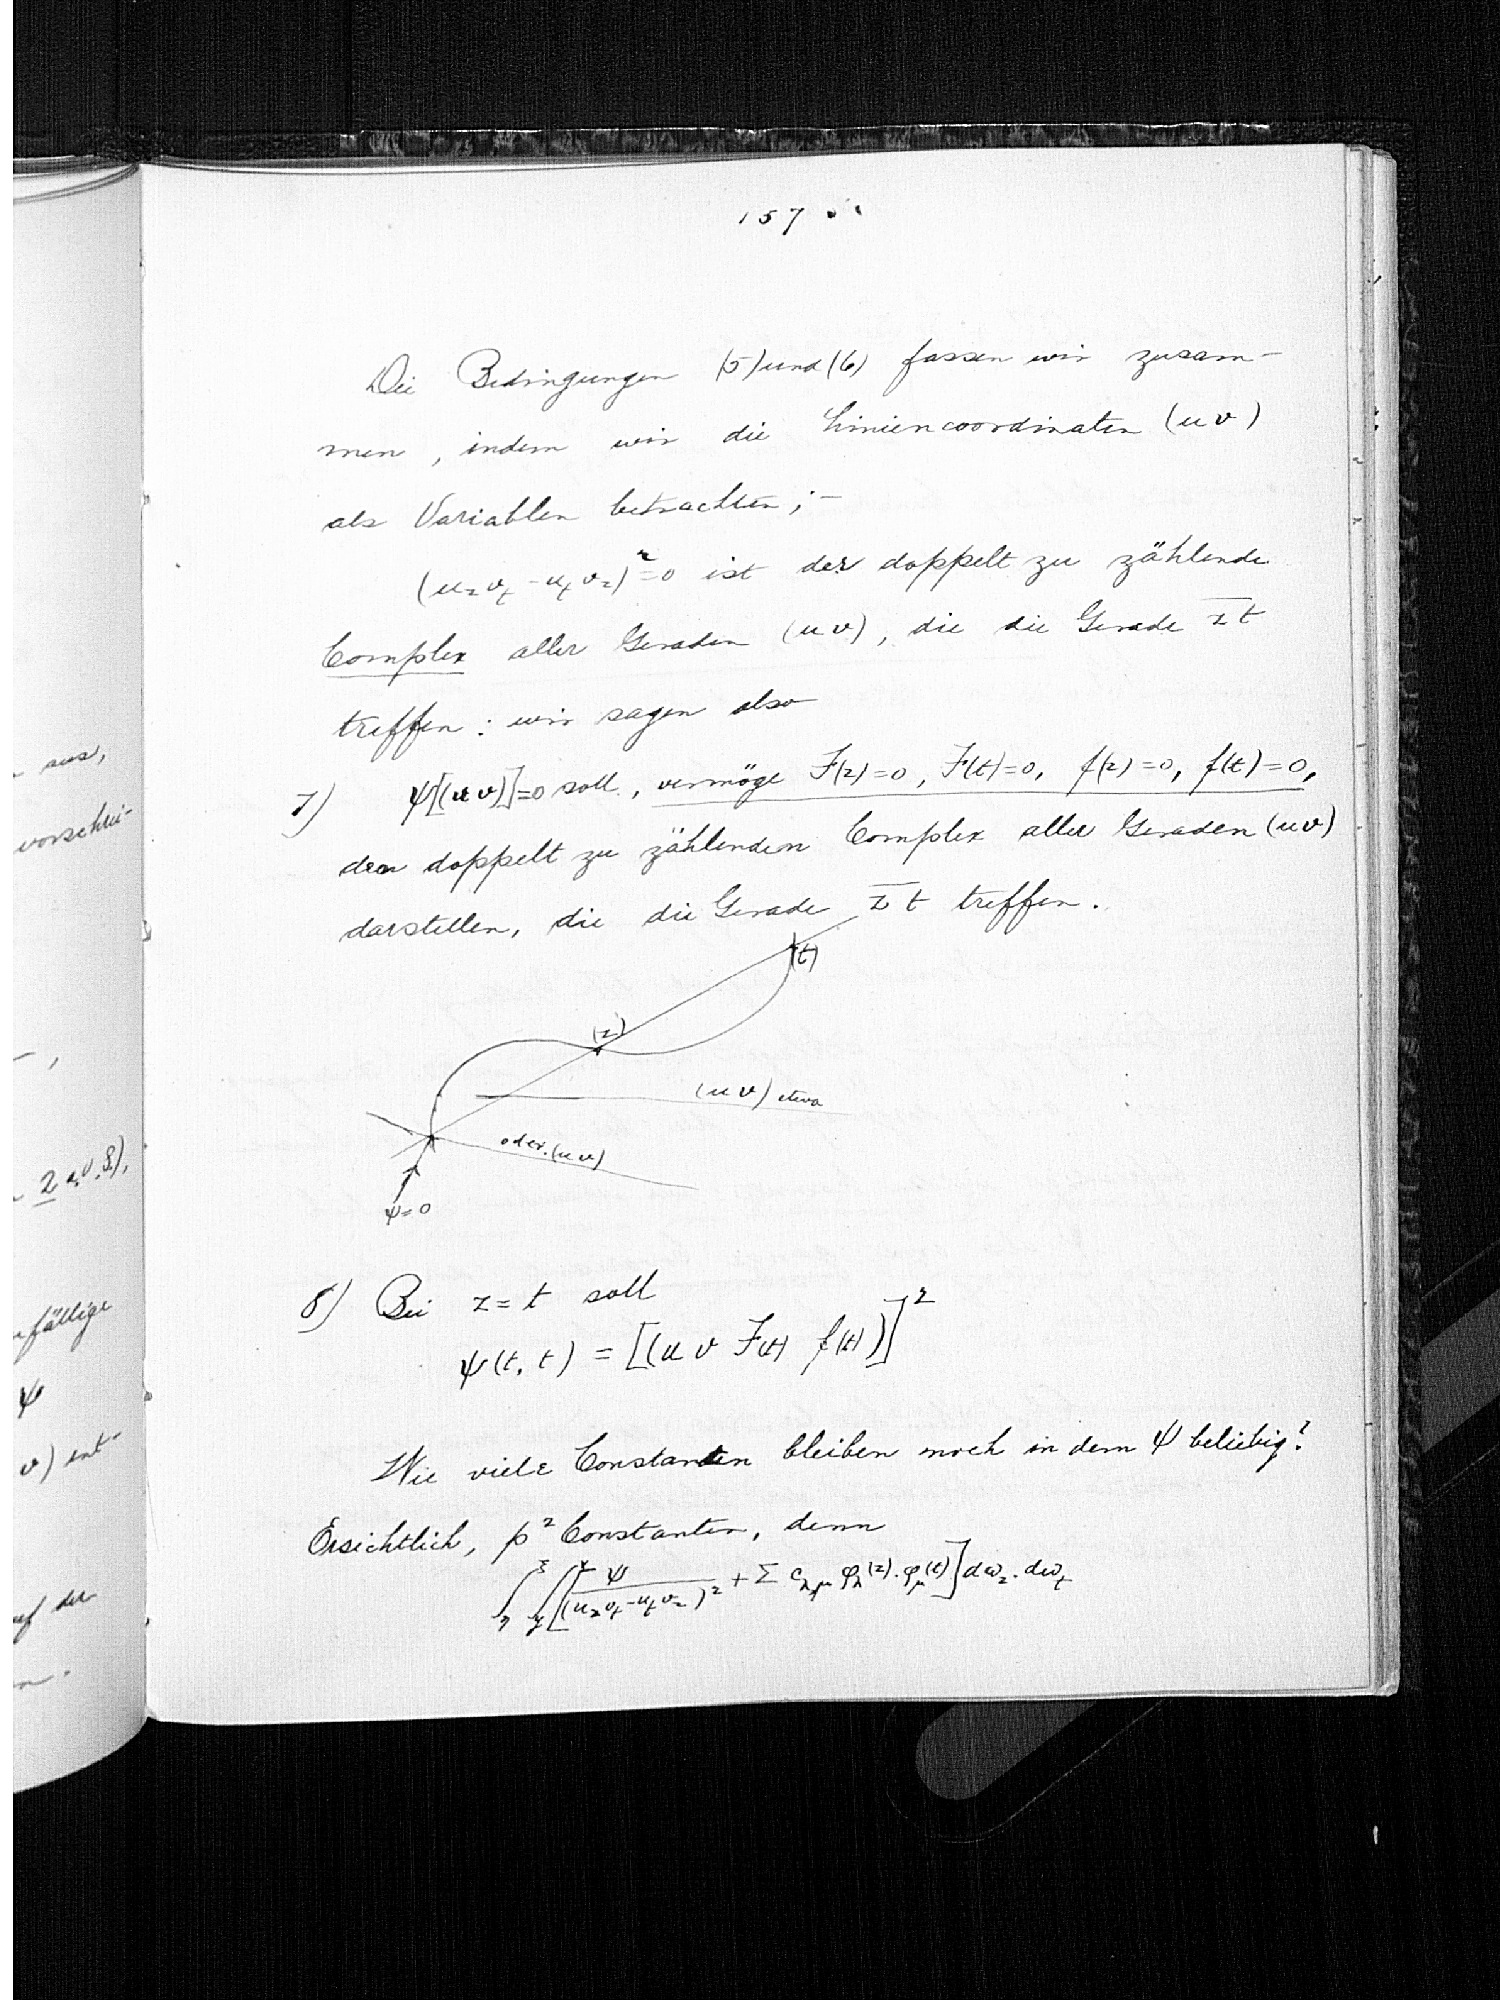 sus,
vorschrei-
2 a.v.S.),
fällige
ψ
v) ent-
auf der
157
Die Bedingungen (5) und (6) fassen wir zusam-
men, indem wir die Liniencoordinaten (u v)
als Variablen betrachten; –
(u_z v_t - u_t v_z)² = 0 ist der doppelt zu zählende
Complex aller Geraden (u v), die die Gerade z t
treffen: wir sagen also
7) ψ[(u v)] = 0 soll, vermöge F(z) = 0, F(t) = 0, f(z) = 0, f(t) = 0,
den doppelt zu zählenden Complex aller Geraden (u v)
darstellen, die die Gerade z t treffen.
(t)
(z)
(u v) etwa
oder (u v)
ψ = 0
8) Bei z = t soll
ψ(t, t) = [(u v F(t) f(t))]²
Wie viele Constanten bleiben noch in dem ψ beliebig?
Ersichtlich, p² Constanten, denn
∫∫[ψ/(u_z v_t - u_t v_z)² + Σ c_λμ φ_λ(z) . φ_μ(t)] dω_z . dω_t